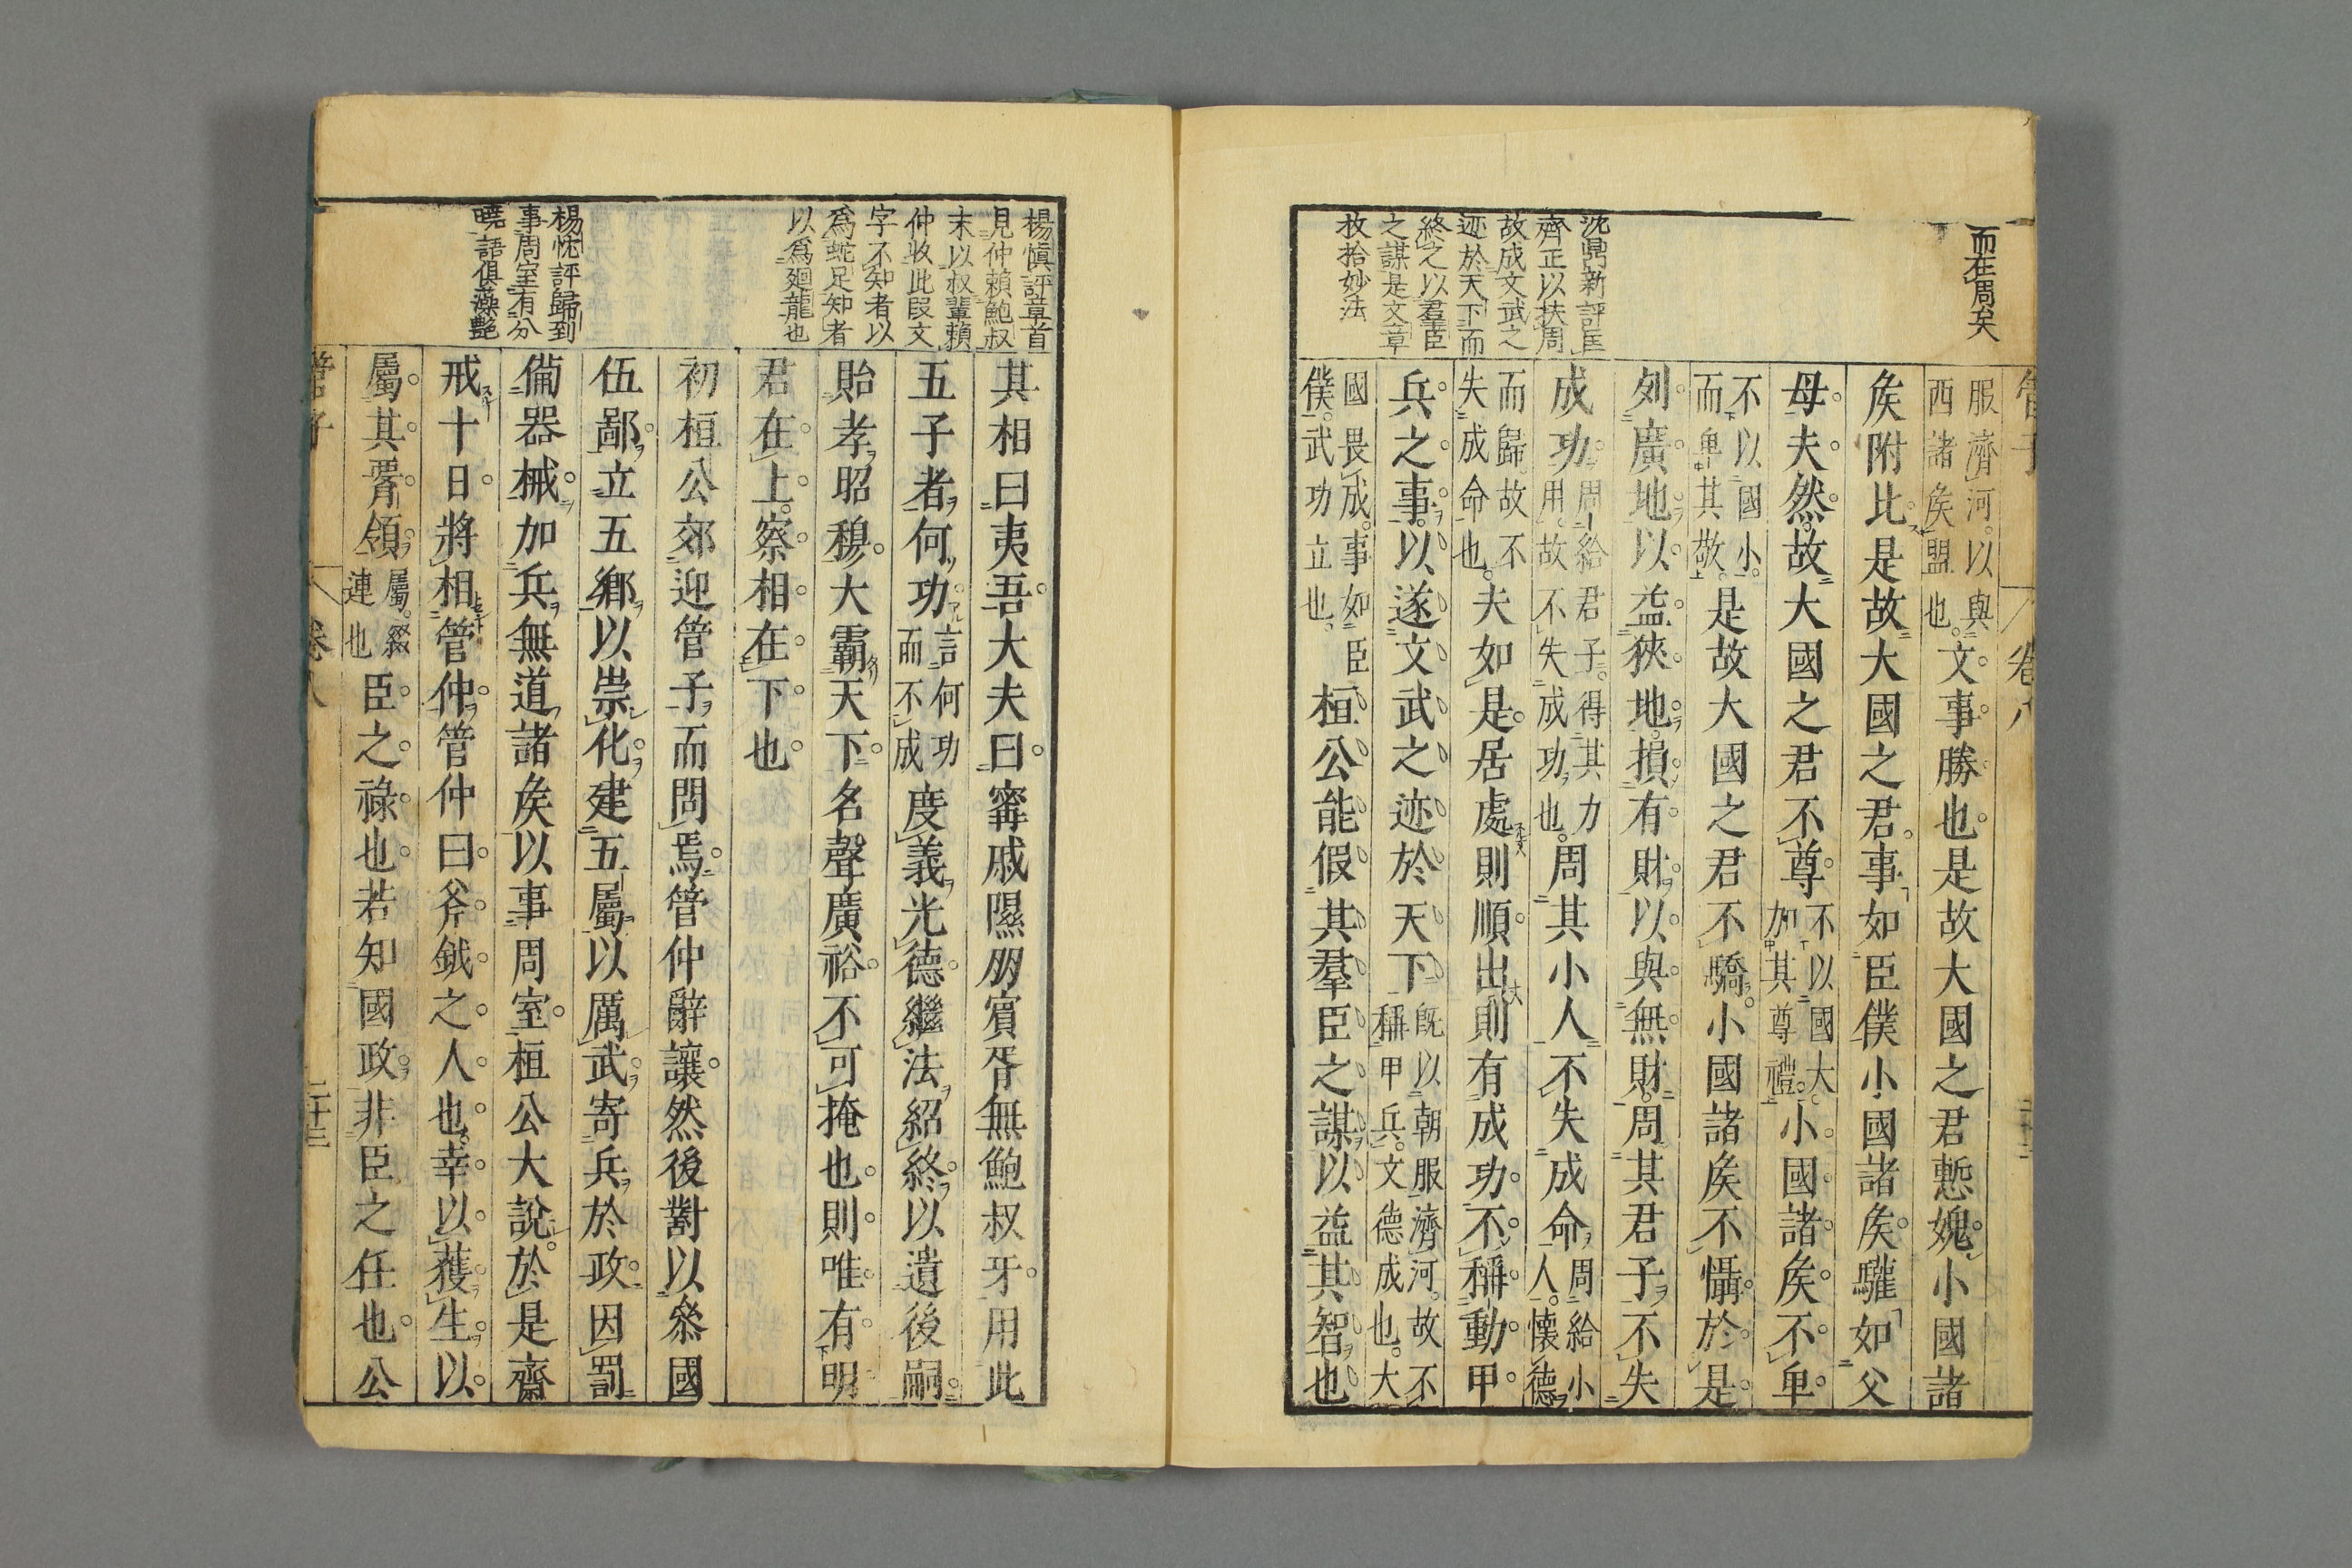 而在周矣
沈鼎新評匡
齊正以扶周
故成文武之
迹於天下而
終之以羣臣
之謀是文章
收拾妙法
服濟河以與
西諸矦盟也
文事勝也是故大國之君慙媿小國諸
矦附比是故大國之君事如臣僕小國諸矦驩如父
母夫然故大國之君不尊
不以國大
加其尊禮
小國諸矦不卑
不以國小
而卑其敬
是故大國之君不驕小國諸矦不懾於是
列廣地以益狹地損有財以與無財周其君子不失
成功
周給君子得其力
用故不失成功也
周其小人不失成命
周給小
人懷德
而歸故不
失成命也
夫如是居處則順出則有成功不稱動甲
兵之事以遂文武之迹於天下
旣以朝服濟河故不
稱甲兵文德成也大
國畏成事如臣
僕武功立也
桓公能假其羣臣之謀以益其智也
管子
卷八
楊愼評章首
見仲賴鮑叔
末以叔輩賴
仲收此段文
字不知者以
爲蛇足知者
以爲廻龍也
楊忱評歸到
事周室有分
曉語俱藻艶
其相曰夷吾大夫曰甯戚隰朋賓胥無鮑叔牙用此
五子者何功
言何功
而不成
度義光德繼法紹終以遺後嗣
貽孝昭穆大霸天下名聲廣裕不可掩也則唯有明
君在上察相在下也
初桓公郊迎管子而問焉管仲辭讓然後對以叅國
伍鄙立五鄕以崇化建五屬以厲武寄兵於政因罰
僃器械加兵無道諸矦以事周室桓公大說於是齋
戒十日將相管仲管仲曰斧鉞之人也幸以獲生以
屬其胥領
屬綴
連也
臣之祿也若知國政非臣之任也公
管子
卷八
二十三